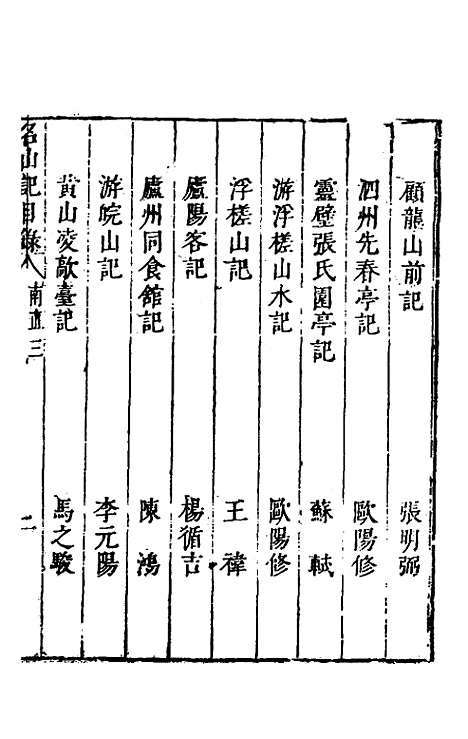 顧龍山前記 張明弼
泗州先春亭記 歐陽修
靈壁張氏園亭記 蘇軾
游浮槎山水記 歐陽修
浮槎山記 王禕
廬陽客記 楊循吉
廬州同食館記 陳鴻
游皖山記 李元陽
黃山凌歊臺記 馬之駿
名山記目錄 南直三 二